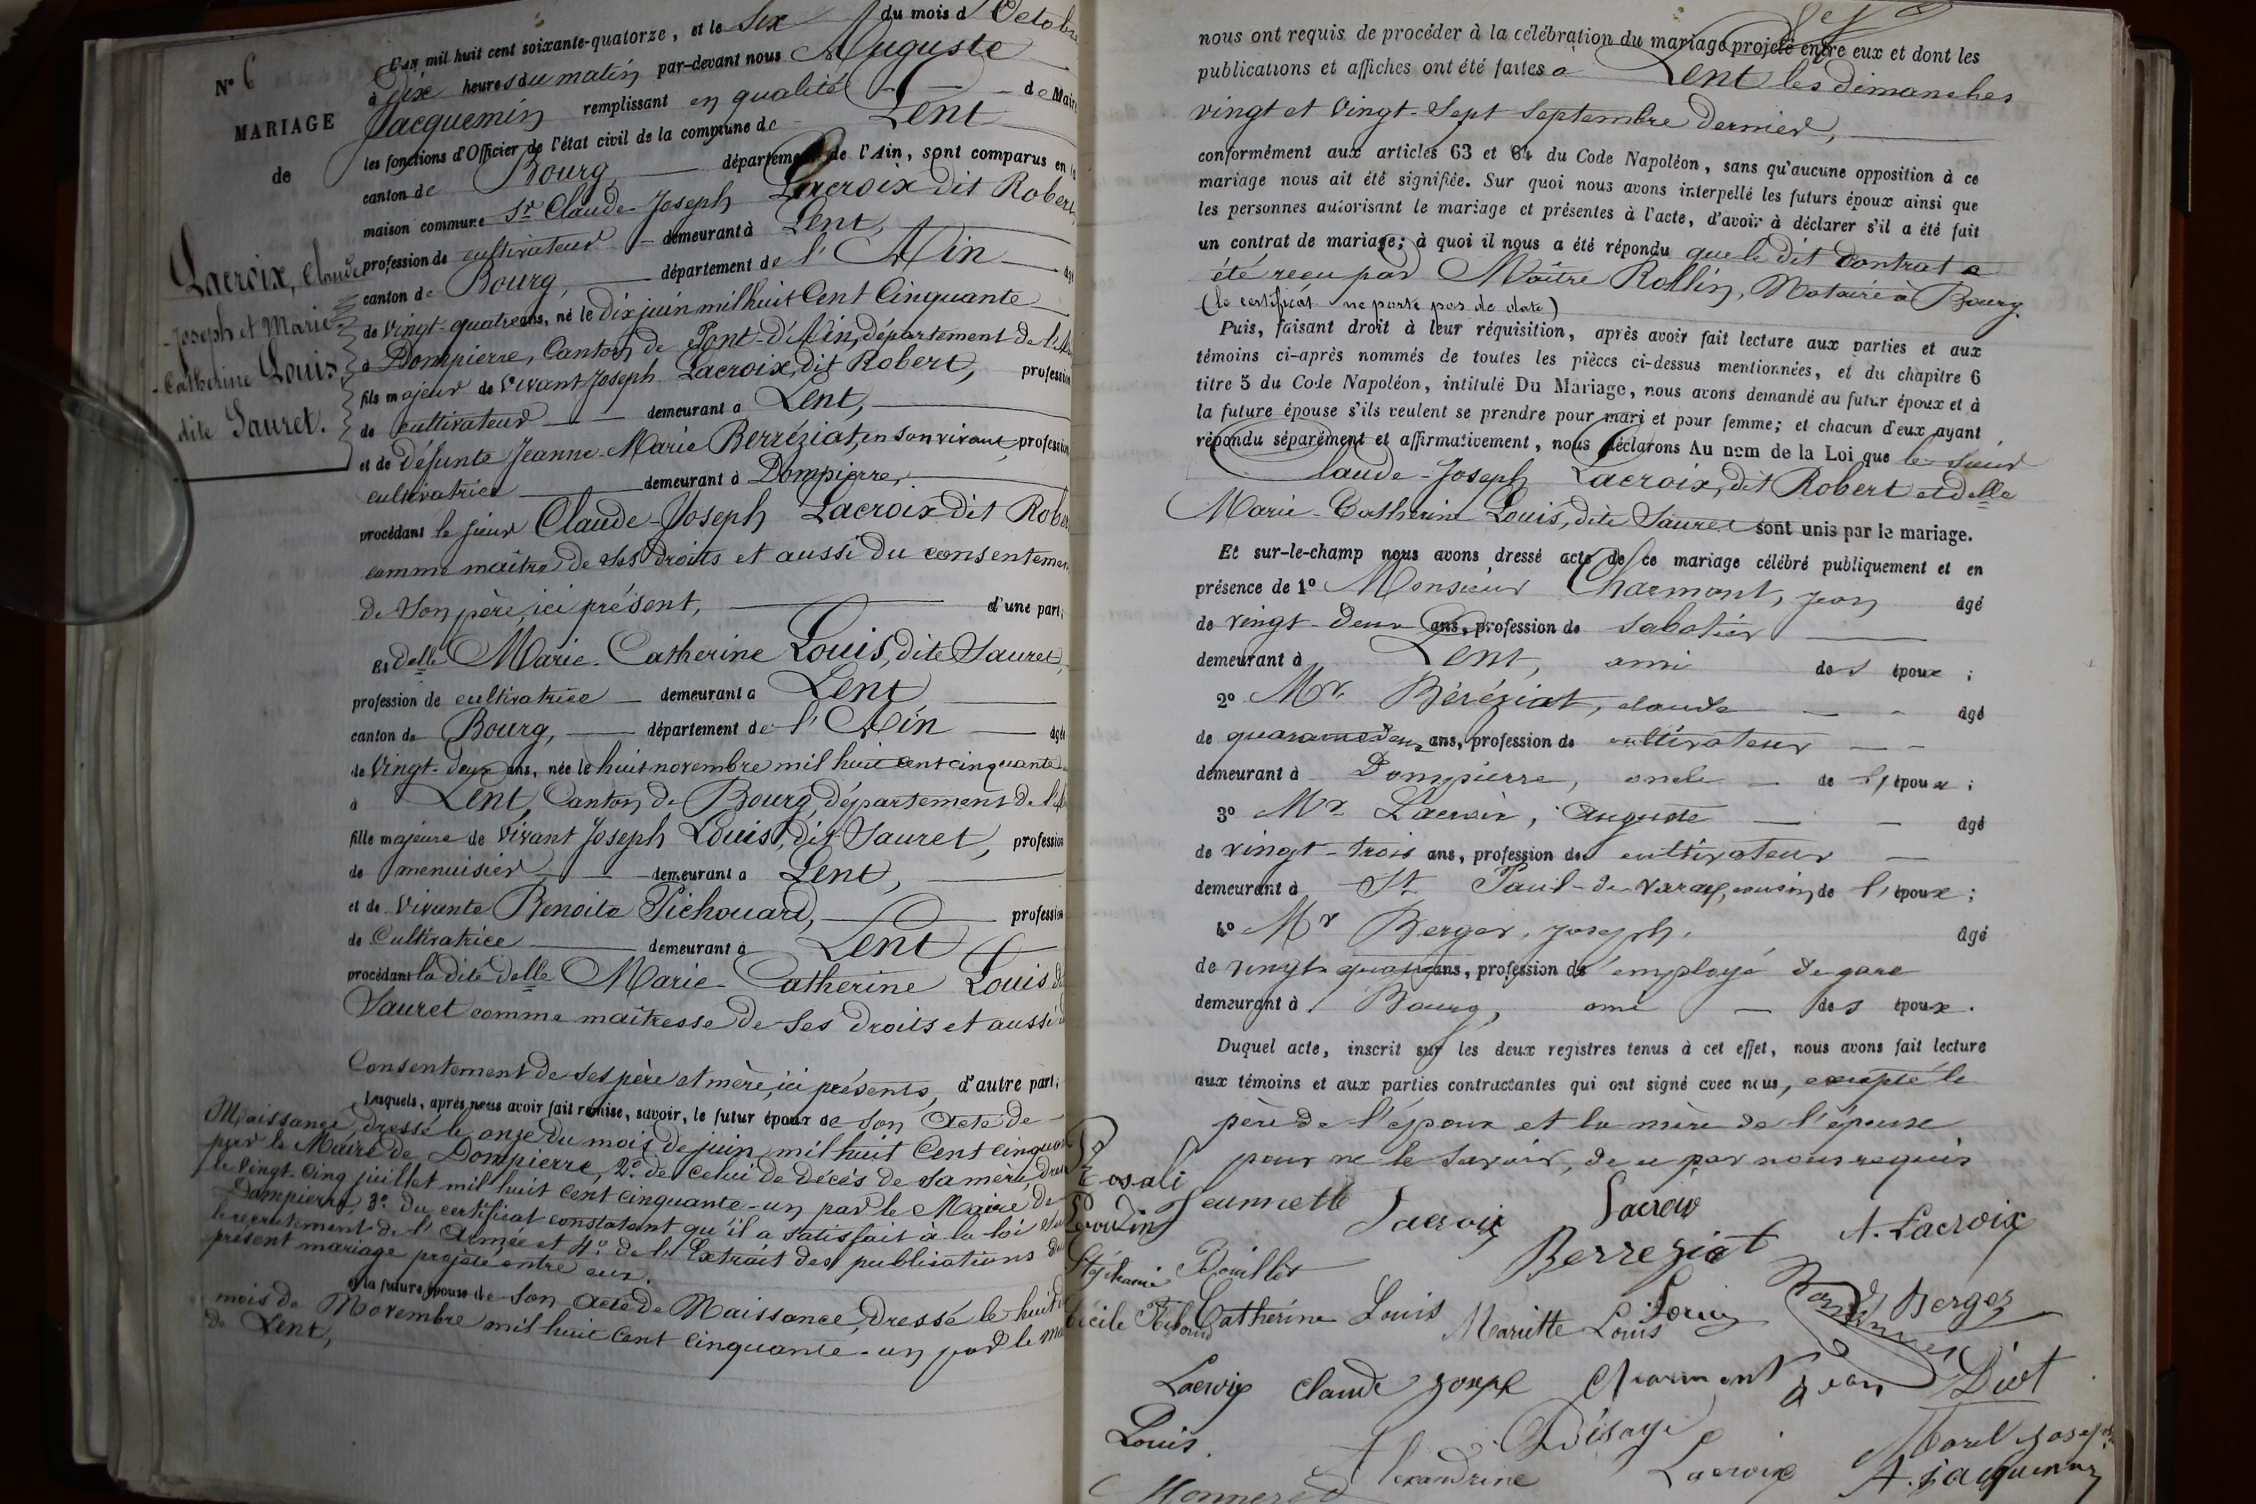 N° 6
MARIAGE
de
Lacroix, Claude
Joseph et Marie-
Catherine Louis
dite Sauret.
L'an mil huit cent soixante-quatorze, et le Six du mois d'Octobre
à dix heures du matin par-devant nous Auguste
Jacquemin remplissant en qualité de Maire
les fonctions d'Officier de l'état civil de la commune de Lent
canton de Bourg, département de l'Ain, sont comparus en la
maison commune Sr. Claude-Joseph Lacroix dit Robert,
profession de cultivateur demeurant à Lent,
canton de Bourg, département de l'Ain âgé
de vingt-quatre ans, né le dix juin mil huit cent cinquante
à Dompierre, Canton de Pont-d'Ain, département de l'Ain
fils majeur de vivant Joseph Lacroix, dit Robert, profession
de cultivateur demeurant à Lent,
et de défunte Jeanne-Marie Berréziat, en son vivant, profession
cultivatrice demeurant à Dompierre,
procédant le sieur Claude-Joseph Lacroix dit Rober
comme maître de ses droits et aussi du consentemen
de son père, ici présent, d'une part;
Et delle Marie-Catherine Louis, dite Sauret,
profession de cultivatrice demeurant à Lent
canton de Bourg, département de l'Ain âgée
de Vingt-deux ans, née le huit novembre mil huit cent cinquante
à Lent, Canton de Bourg, département de l'A
fille majeure de vivant Joseph Louis, dit Sauret, profession
de menuisier demeurant à Lent,
et de vivante Benoite Pichouard, profession
de Cultivatrice demeurant à Lent
procédant la dite delle Marie-Catherine Louis d
Sauret comme maîtresse de ses droits et aussi
Consentement de ses père et mère, ici présents, d'autre part;
Lesquels, après nous avoir fait remise, savoir, le futur époux de son Acte de
Naissance, dressé le onze du mois de juin mil huit cent cinquan
par le Maire de Dompierre, 2° de celui de décès de sa mère, dre
le vingt-cinq juillet mil huit cent cinquante-un par le Maire de
Dompierre, 3° du certificat constatant qu'il a satisfait à la loi su
le recrutement de l'Armée et 4° de l'Extrait des publications du
présent mariage projeté entre eux.
et la future épouse de son Acte de Naissance, dressé le huit d
mois de Novembre mil huit cent cinquante-un par le Ma
de Lent,
nous ont requis de procéder à la célébration du mariage projeté entre eux et dont les
publications et affiches ont été faites à Lent les dimanches
vingt et vingt-sept septembre dernier,
conformément aux articles 63 et 64 du Code Napoléon, sans qu'aucune opposition à ce
mariage nous ait été signifiée. Sur quoi nous avons interpellé les futurs époux ainsi que
les personnes autorisant le mariage et présentes à l'acte, d'avoir à déclarer s'il a été fait
un contrat de mariage; à quoi il nous a été répondu que le dit contrat a
été reçu par Maître Rollin, Notaire à Bourg.
(le certificat ne porte pas de date)
Puis, faisant droit à leur réquisition, après avoir fait lecture aux parties et aux
témoins ci-après nommés de toutes les pièces ci-dessus mentionnées, et du chapitre 6
titre 5 du Code Napoléon, intitulé Du Mariage, nous avons demandé au futur époux et à
la future épouse s'ils veulent se prendre pour mari et pour femme; et chacun d'eux ayant
répondu séparément et affirmativement, nous déclarons Au nom de la Loi que le sieur
Claude-Joseph Lacroix, dit Robert et delle
Marie-Catherine Louis, dite Sauret sont unis par le mariage.
Et sur-le-champ nous avons dressé acte de ce mariage célébré publiquement et en
présence de 1° Monsieur Charmont, jean âgé
de vingt-deux ans, profession de sabotier
demeurant à Lent, ami des époux;
2° Mr. Béréziat, claude âgé
de quarante deux ans, profession de cultivateur
demeurant à Dompierre, oncle de l'époux;
3° Mr Lacroix, Auguste âgé
de vingt-trois ans, profession de cultivateur
demeurant à St Paul-de-Varax, cousin de l'époux;
4° Mr Berger, joseph, âgé
de vingt-quatre ans, profession d'employé de gare
demeurant à Bourg, ami des époux.
Duquel acte, inscrit sur les deux registres tenus à cet effet, nous avons fait lecture
aux témoins et aux parties contractantes qui ont signé avec nous, excepté le
père de l'époux et la mère de l'épouse
pour ne le savoir, de ce par nous requis
Rosali Jeannette Lacroix Lacroix A. Lacroix
Boudin Berreziat
Stéphanie Bouillet
Cécile Catherine Louis Mariette Louis Louis Berger
Lacroix Claude Joseph Charmont Jean
Louis. Désage Morel Joseph
Alexandrine Lacroix A. Jacquemin